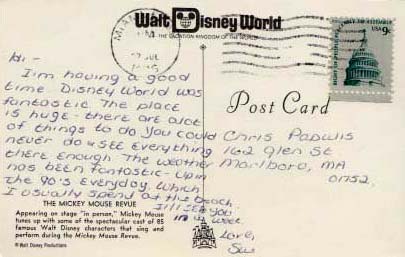 Walt Disney World
THE VACATION KINGDOM OF THE WORLD
MIA
PM
JUL
RIGHT OF THE PEOPLE PEACEABLY TO ASSEMBLE
USA 9c
Hi -
I'm having a good
time Disney World was
fantastic The place
is huge - there are alot
of things to do You could
never do & see Everything
there enough The weather
has been fantastic - up in
the 90's Everyday. Which
I usually spend at the beach.
I'll see you
in a week
Love,
Sue
Post Card
Chris Padwis
162 Glen St
Marlboro, MA
01752
THE MICKEY MOUSE REVUE
Appearing on stage "in person," Mickey Mouse
tunes up with some of the spectacular cast of 85
famous Walt Disney characters that sing and
perform during the Mickey Mouse Revue.
© Walt Disney Productions